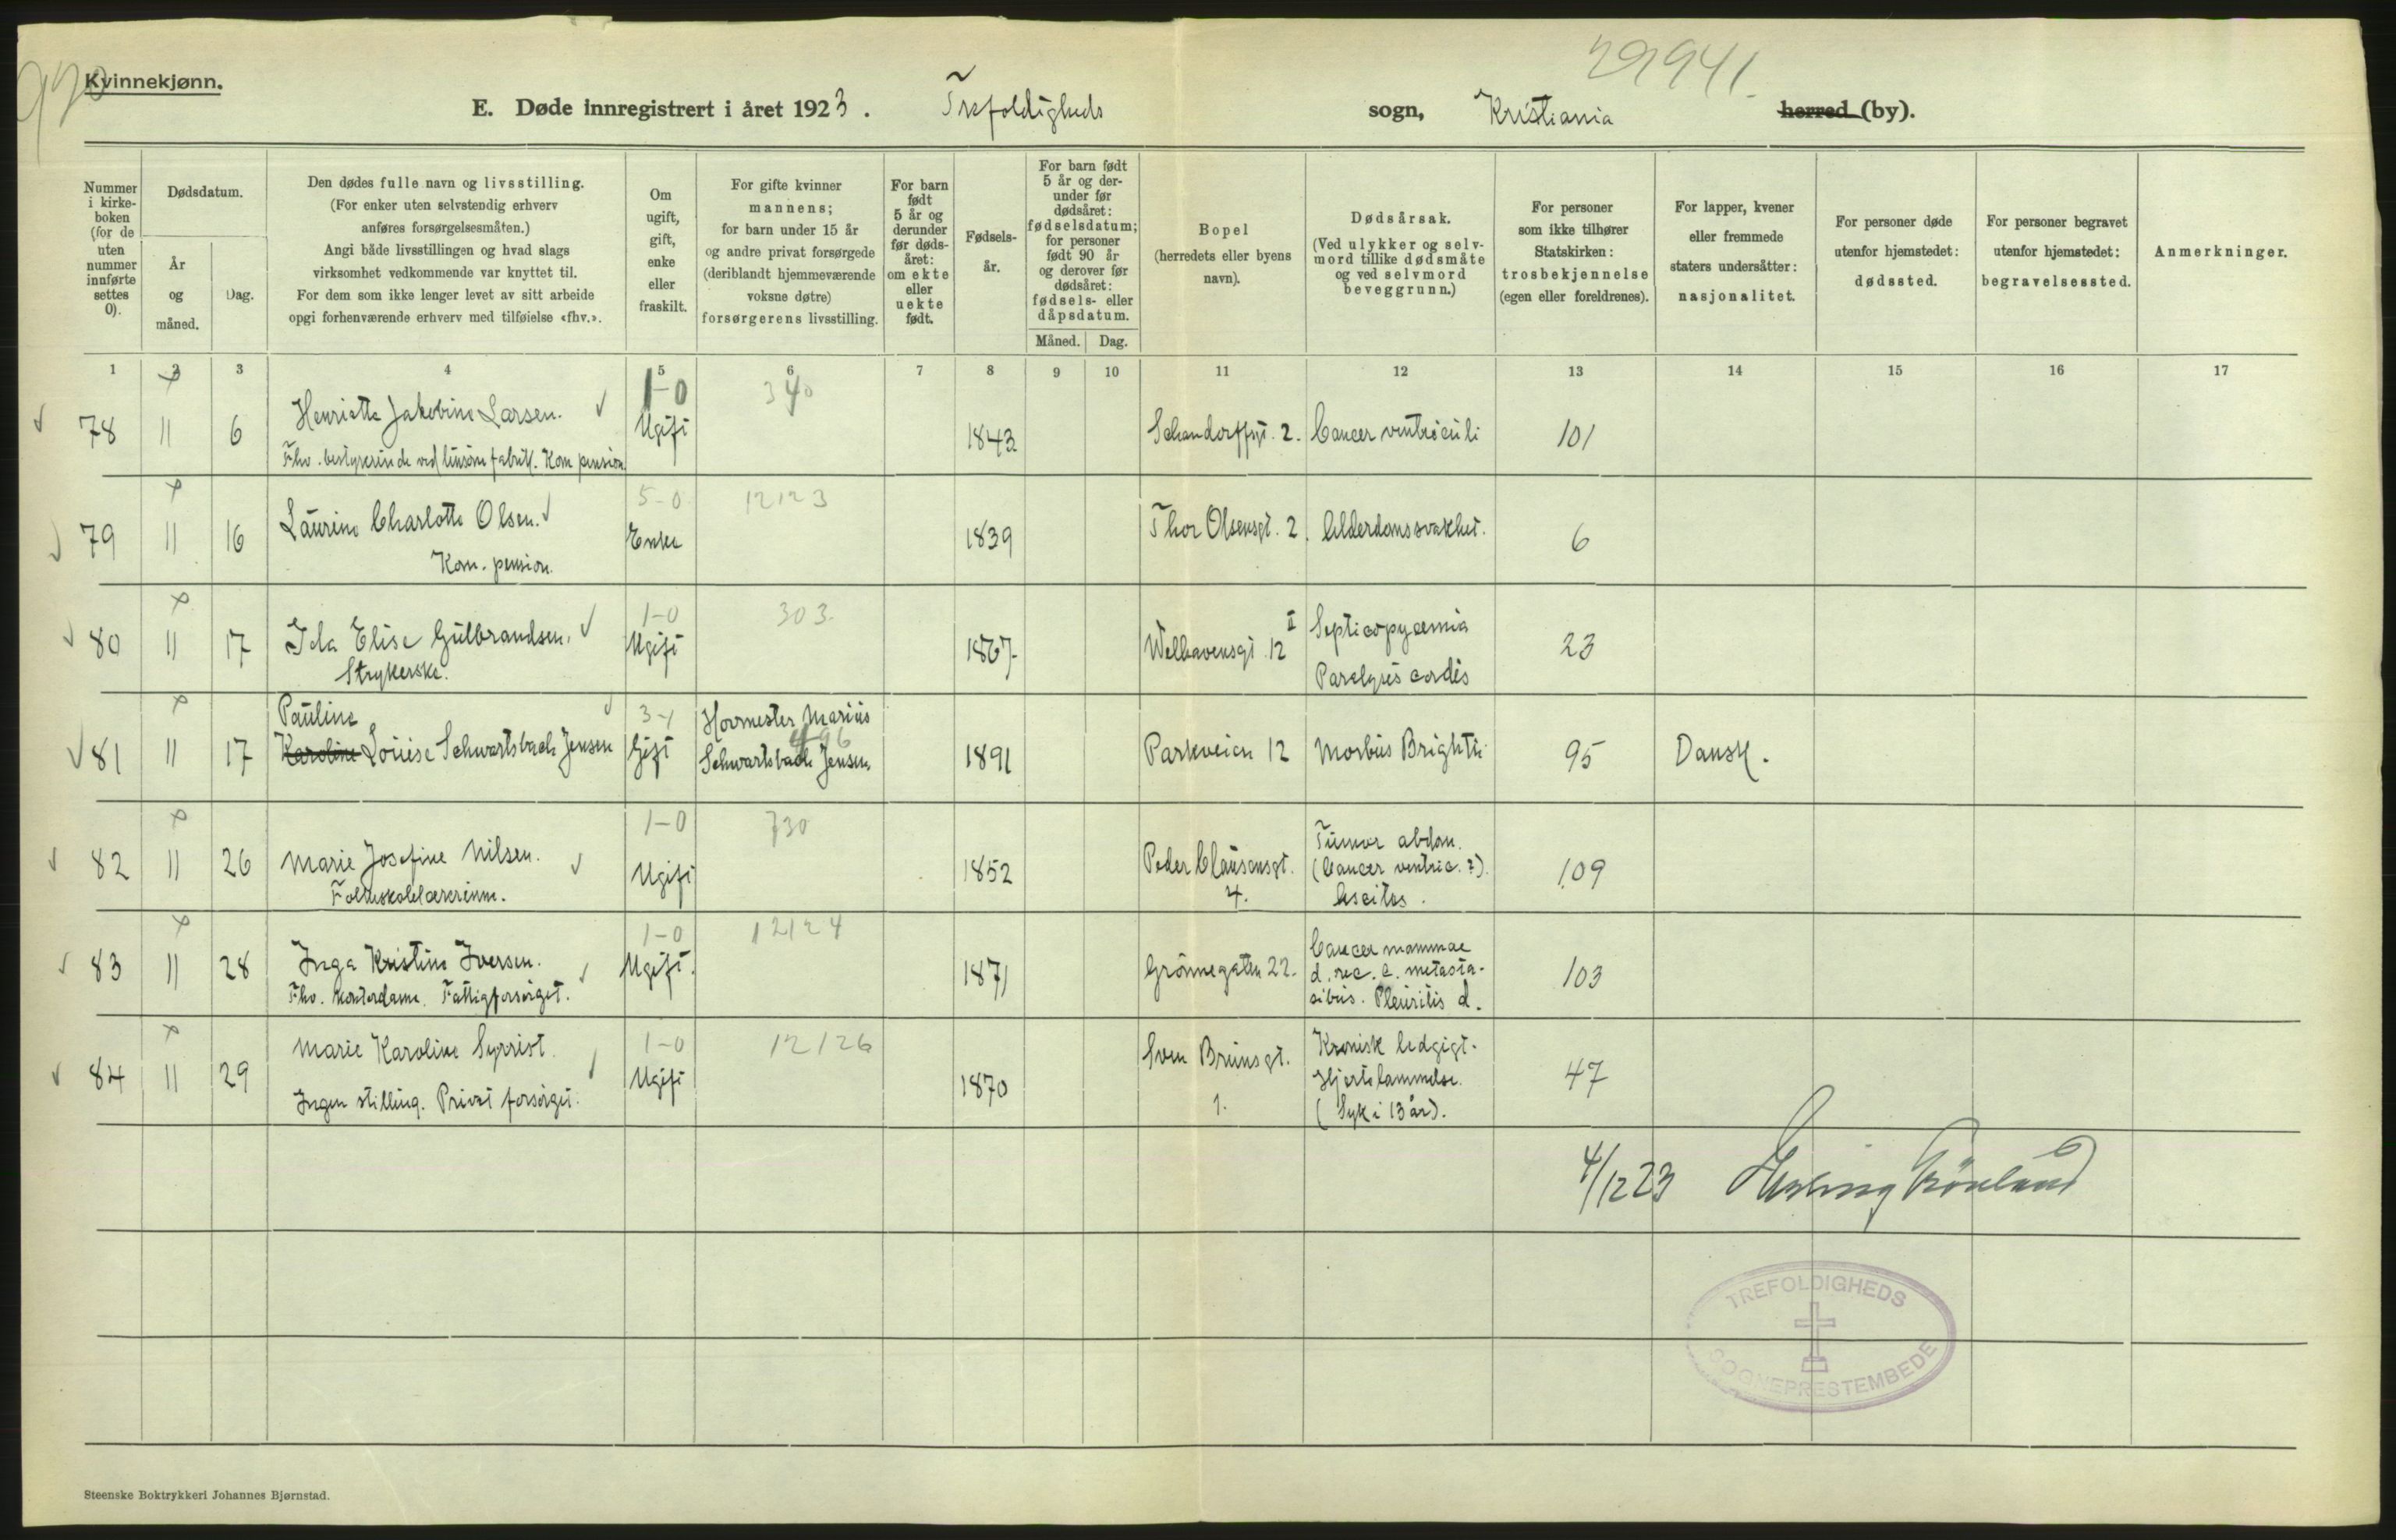 Kvinnekjønn.
29941.
E. Døde innregistrert i året 1923. Trefoldigheds sogn, Kristiania herred (by).
Nummer i kirke-boken (for de uten nummer innførte settes 0).
Dødsdatum.
År og måned.
Dag.
Den dødes fulle navn og livsstilling.
(For enker uten selvstendig erhverv
anføres forsørgelsesmåten.)
Angi både livsstillingen og hvad slags
virksomhet vedkommende var knyttet til.
For dem som ikke lenger levet av sitt arbeide
opgi forhenværende erhverv med tilføielse «fhv.».
Om ugift, gift, enke eller fraskilt.
For gifte kvinner
mannens;
for barn under 15 år
og andre privat forsørgede
(deriblandt hjemmeværende
voksne døtre)
forsørgerens livsstilling.
For barn født 5 år og derunder før døds-året: om ekte eller uekte født.
Fødsels-år.
For barn født 5 år og der-under før dødsåret: fødselsdatum; for personer født 90 år og derover før dødsåret: fødsels- eller dåpsdatum.
Måned. Dag.
Bopel
(herredets eller byens
navn).
Dødsårsak.
(Ved ulykker og selv-
mord tillike dødsmåte
og ved selvmord
beveggrunn.)
For personer
som ikke tilhører
Statskirken:
trosbekjennelse
(egen eller foreldrenes).
For lapper, kvener
eller fremmede
staters undersåtter:
nasjonalitet.
For personer døde
utenfor hjemstedet:
dødssted.
For personer begravet
utenfor hjemstedet:
begravelsessted.
Anmerkninger.
1 2 3 4 5 6 7 8 9 10 11 12 13 14 15 16 17
1-0 340
78 11 6 Henriette Jakobine Larsen. Ugift 1843 Schandorffsgt. 2. Cancer ventriculi 101
Fhv. bestyrerinde ved linsømfabrik. Kom pension
5-0 12123
79 11 16 Laurine Charlotte Olsen. Enke 1839 Thor Olsensgt. 2. Alderdomssvakhet. 6
Kom. pension.
1-0 303
80 11 17 Ida Elise Gulbrandsen. Ugift 1867 Welhavensgt. 12 II Septicopyæmia 23
Strykerske. Paralysis cordis
Pauline 3-1 Hovmester Marius
496
81 11 17 Karoline Louise Schwartsbach Jensen Gift Schwartsbach Jensen. 1891 Parkveien 12 Morbus Brightii 95 Dansk.
1-0 730 Tumor abdom.
82 11 26 Marie Josefine Nilsen. Ugift 1852 Peder Clausensgt. (Cancer ventric. ?). 109
Folkeskolelærerinne. 4. Ascites.
1-0 12124 Cancer mammae
83 11 28 Inga Kristine Iversen. Ugift. 1871 Grønnegaten 22. d. rec. c. metasta- 103
Fhv. kontordame. Fattigforsørget. sibus. Pleuritis d.
Marie Karoline Syrrist. 1-0 12126 Sven Brunsgt. Kronisk ledgigt.
84 11 29 Ugift 1870 Hjertelammelse. 47
Ingen stilling. Privat forsørget. 1. (Syk i 13 år).
4/12 23
TREFOLDIGHEDS
SOGNEPRESTEMBEDE
Steenske Boktrykkeri Johannes Bjørnstad.